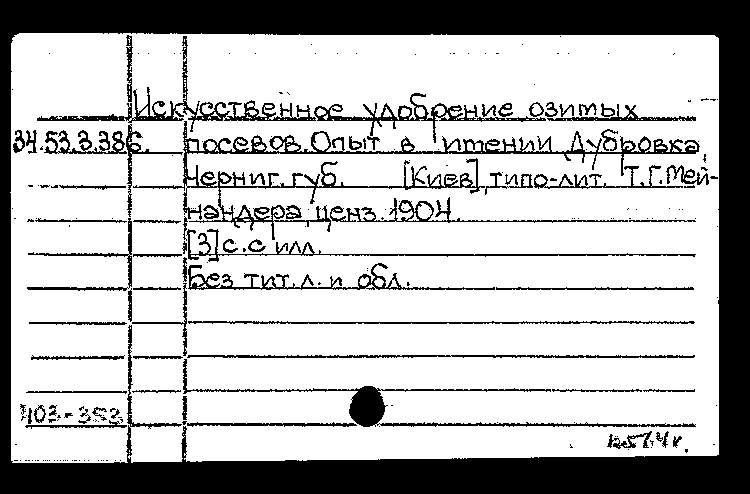 Искусственное удобрение озимых
34.53.3.386. посевов. Опыт в имении Дубровка,
Черниг. губ. [Киев], типо-лит. Т.Г. Мей-
нандера, ценз. 1904.
[3] с. с илл.
Без тит. л. и обл.
403-353